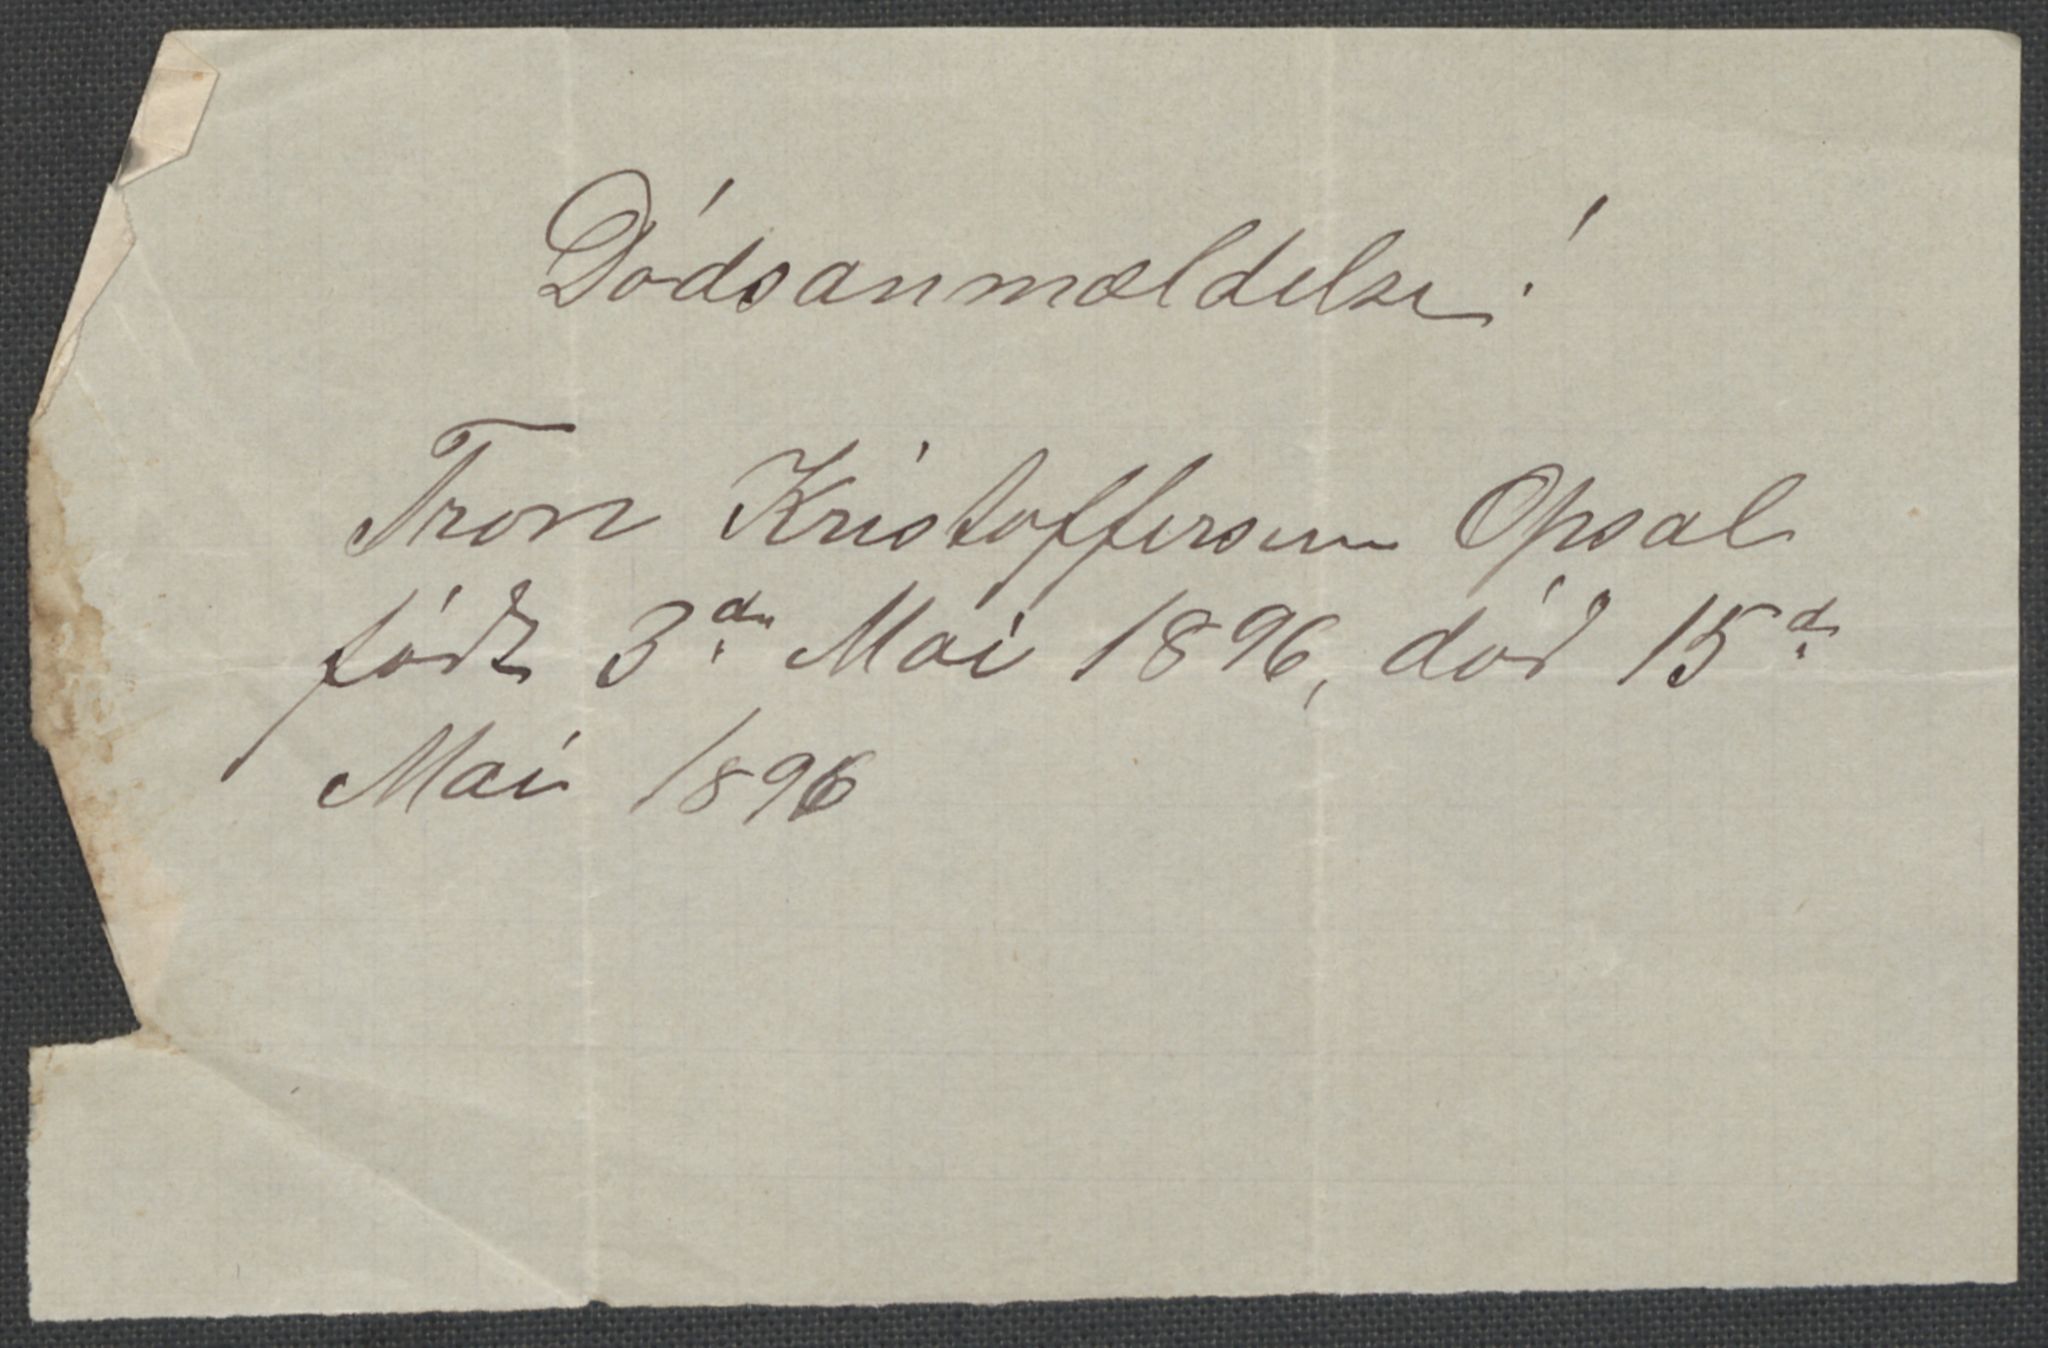 Dódsanmældelse!
Tron Kristoffersen Opsal
fódt 3die Mai 1896, dód 15d
Mai 1896